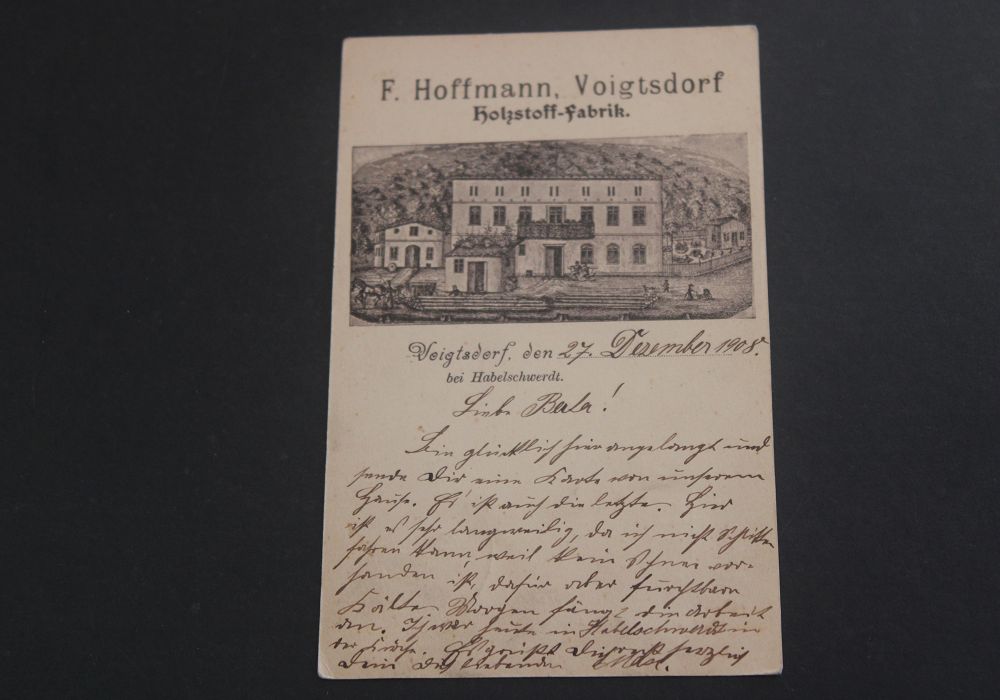 F. Hoffmann, Voigtsdorf
Holzstoff-Fabrik.
Voigtsdorf, den 27. Dezember 1908.
bei Habelschwerdt.
Liebe Berta!
Bin glücklich hier angelangt und
sende Dir eine Karte von unserem
Hause. Es ist auch die letzte. Hier
ist es sehr langweilig, da ich nicht Schlitten
fahren kann, weil kein Schnee vor-
handen ist, dafür aber furchtbare
Kälte. Morgen fängt die Arbeit
an. Ich war heute in Habelschwerdt in
der Kirche. Es grüßt Dich recht herzlich
Dein Dich liebender